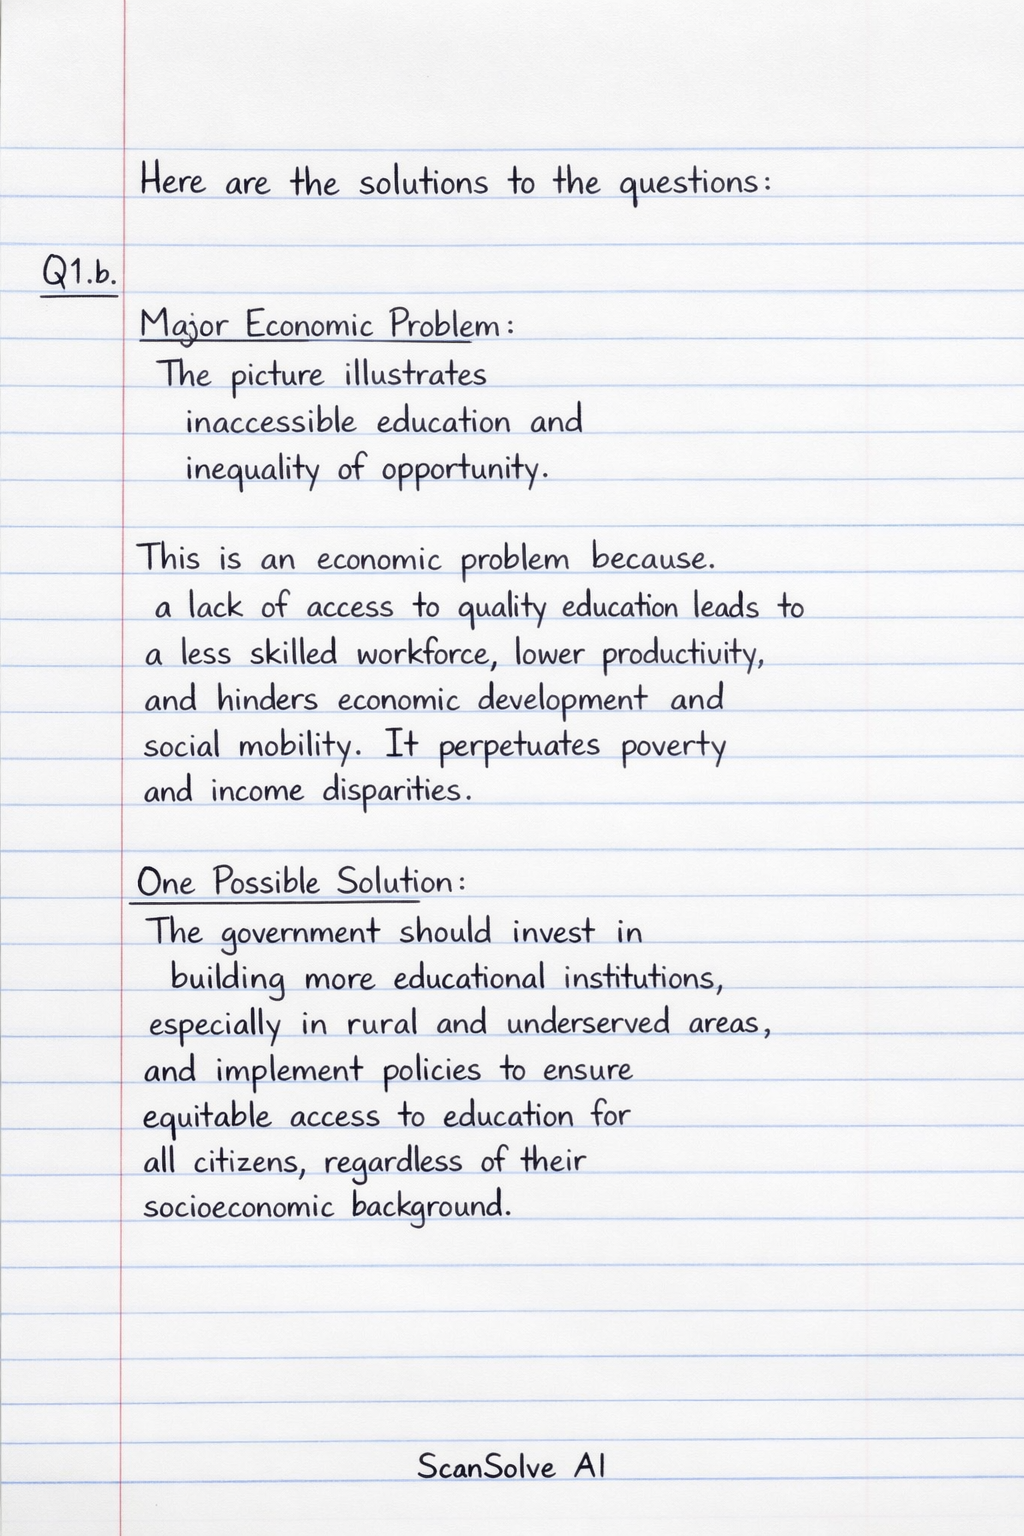 Here are the solutions to the questions:
Q1.b.
Major Economic Problem:
The picture illustrates
inaccessible education and
inequality of opportunity.
This is an economic problem because.
a lack of access to quality education leads to
a less skilled workforce, lower productivity,
and hinders economic development and
social mobility. It perpetuates poverty
and income disparities.
One Possible Solution:
The government should invest in
building more educational institutions,
especially in rural and underserved areas,
and implement policies to ensure
equitable access to education for
all citizens, regardless of their
socioeconomic background.
ScanSolve AI